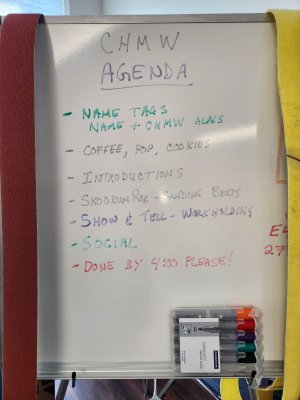 CHMW
AGENDA
- NAME TAGS
NAME + CHMW ALAIS
- COFFEE, POP, COOKIES
- INTRODUCTIONS
- SKOOKUM ROB - SANDING BELTS
- SHOW & TELL - WORKHOLDING
- SOCIAL
- DONE BY 4:30 PLEASE!